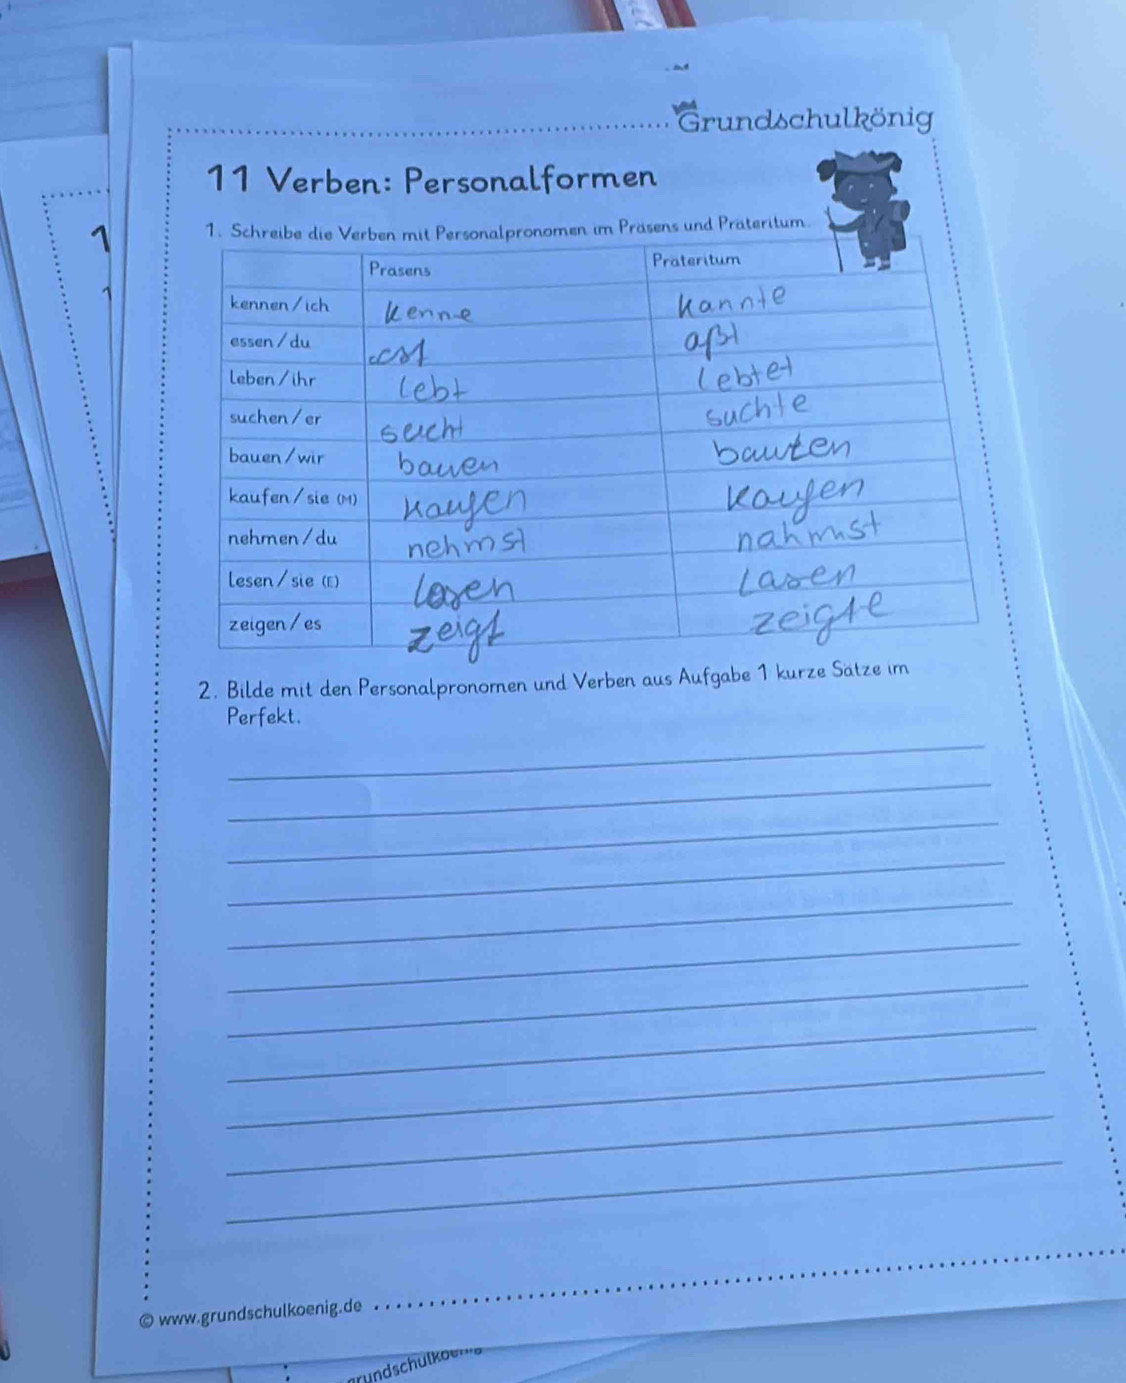 Grundschulkönig
11 Verben: Personalformen
1
1. Schreibe die Verben mit Personalpronomen im Präsens und Präteritum.
Präsens Präteritum
kennen / ich kenne kannte
essen / du est aßt
leben / ihr lebt lebtet
suchen / er sucht suchte
bauen / wir bauen bauten
kaufen / sie (M) kaufen kaufen
nehmen / du nehmst nahmst
lesen / sie (E) lesen lasen
zeigen / es zeigt zeigte
2. Bilde mit den Personalpronomen und Verben aus Aufgabe 1 kurze Sätze im
Perfekt.
© www.grundschulkoenig.de